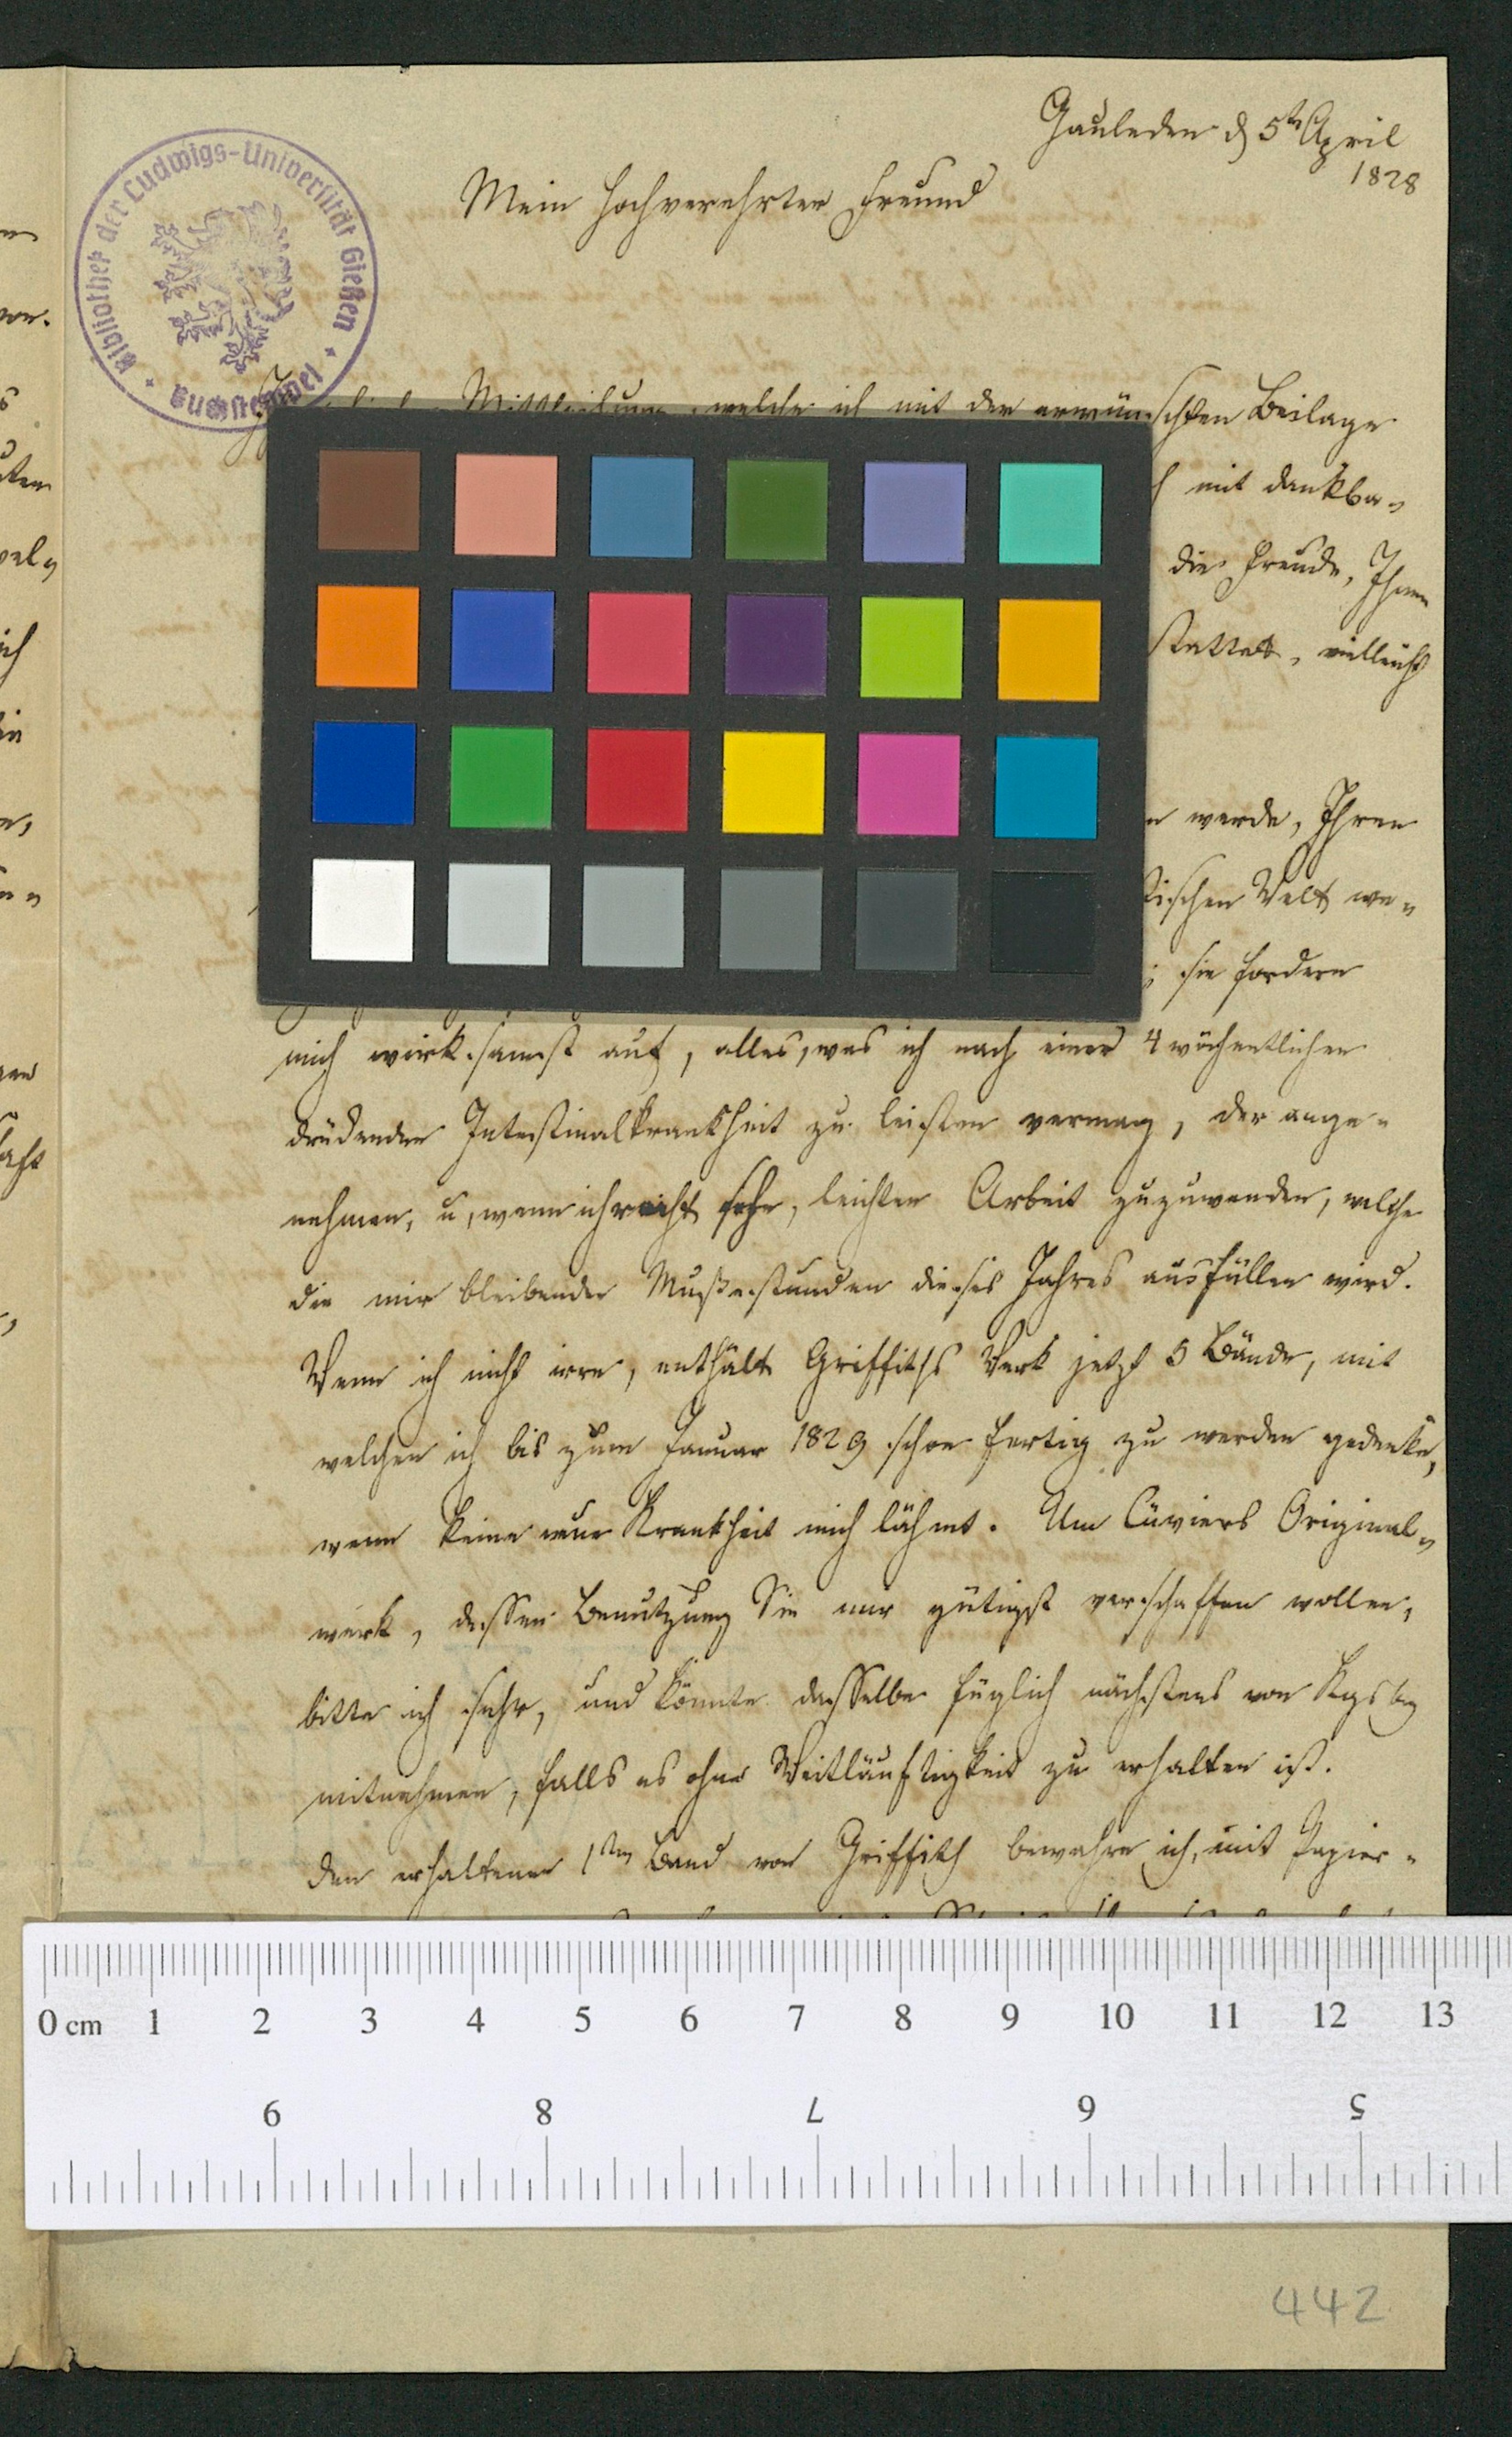 Gauleden d 5ten April
1828
Mein hochverehrter Freund
Bibliothek der Ludwigs-Universität Gießen
Mittheilung, welche ich mit der erwünschten Beilage
mit dankba-
die Freude, Ihnen
stattet, vielleicht
werde, Ihren
tischen Welt we-
; sie fordern
mich wirksamst auf, alles, was ich nach einer 4 wöchentlichen
drückenden Intestinalkrankheit zu leisten vermag, der ange-
nehmen, u, wenn ich recht sehe, leichten Arbeit zuzuwenden, welche
die mir bleibenden Mußestunden dieses Jahres ausfüllen wird.
Wenn ich nicht irre, enthält Griffiths Werk jetzt 5 Bände, mit
welchen ich bis zum Januar 1829 schon fertig zu werden gedenke,
wenn keine neue Krankheit mich lähmt. Um Cüviers Original-
werk, dessen Benutzung Sie mir gütigst verschaffen wollen,
bitte ich sehr, und könnte dasselbe füglich nächstens von Kgsbg
mitnehmen, falls es ohne Weitläuftigkeit zu erhalten ist.
Den erhaltenen 1ten Band von Griffith bewahre ich, mit Papier-
0 cm 1 2 3 4 5 6 7 8 9 10 11 12 13
9 8 7 6 5
442